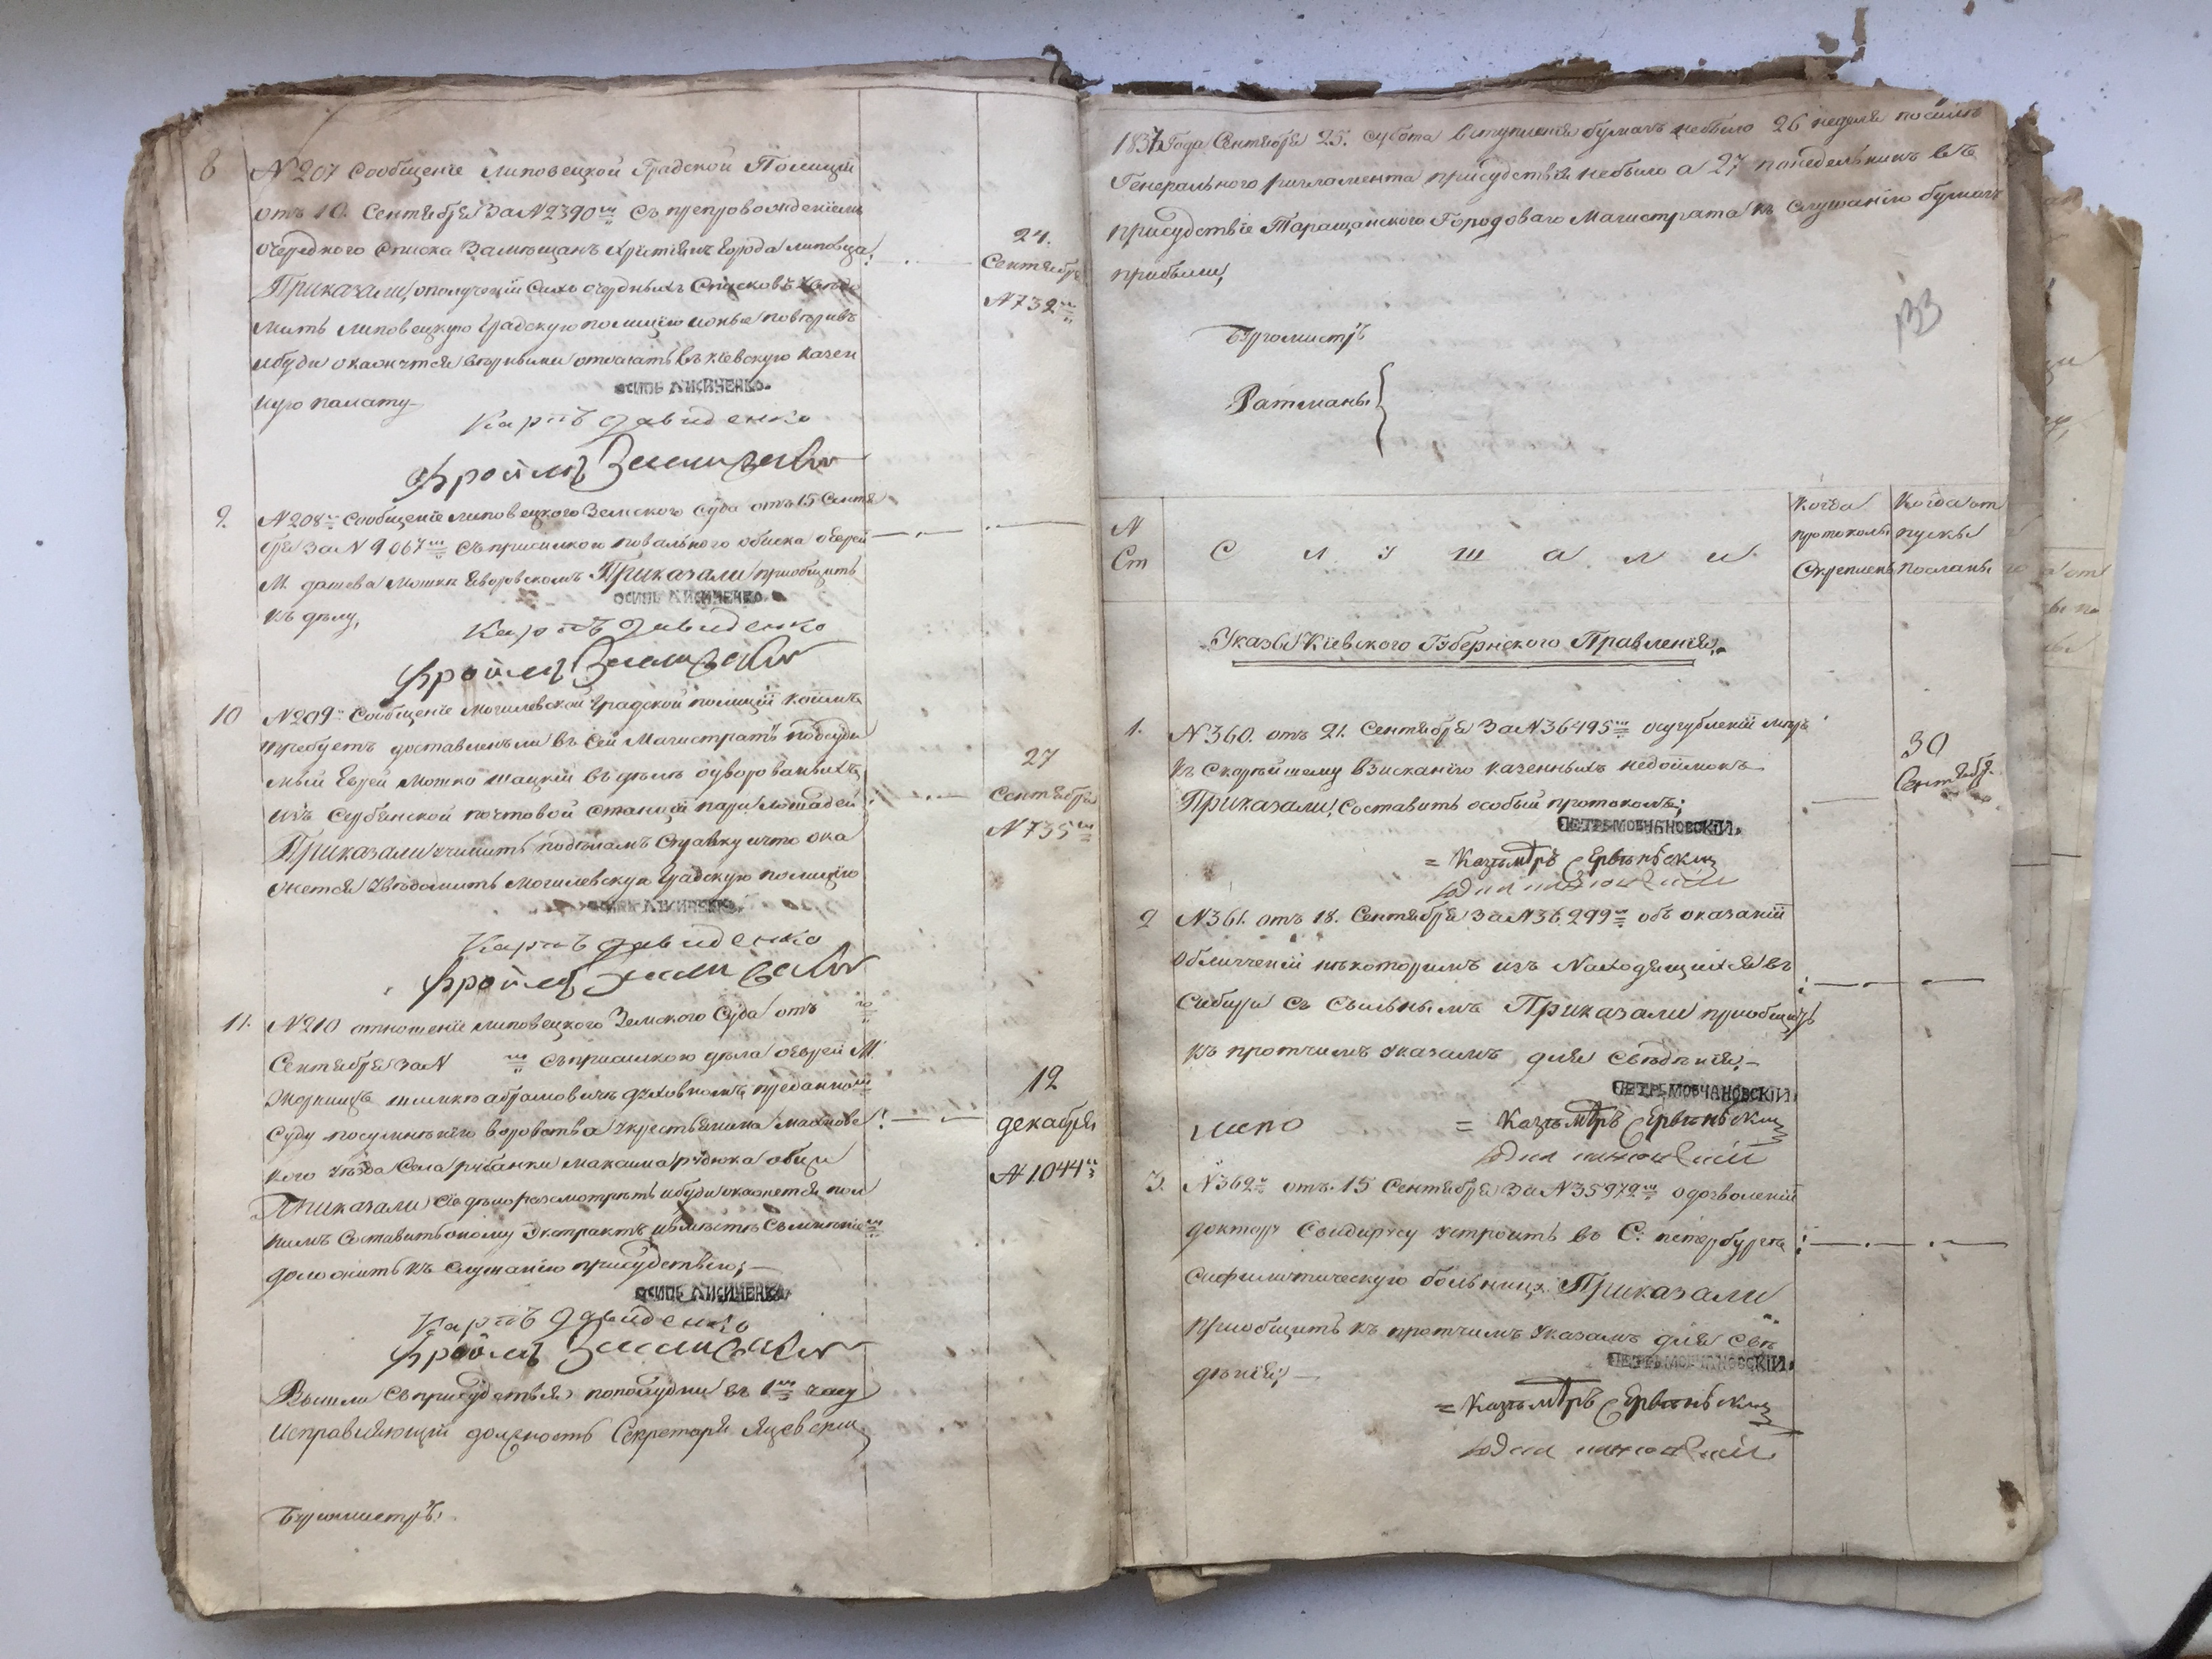 8
№ 207 Сообщенїе Липовецкой Градской Полицїи
отъ 10. Сентября За № 2390м съ препровожденїемъ
очереднаго Списка Замѣщанъ Христїянъ города Липовца,
Приказали, ополученїи Сихъ очередныхъ Списковъ увѣдо
мить Липовецкую градскую полицїю ионые повѣривъ
ибуди окажутся вѣрными отослать въ Кїевскую казен
ную палату
24.
Сентября
№ 732
ОСИПЪ ЛИСИЧЕНКО.
Карпъ Давиденко
Фроимъ
9.
№ 208 Сообщенїе Липовецкого Земского Суда отъ 15 Сентя
бря За № 9067м съ присилкою повального обиска оЕврей
М. Дашева Мошки Яворовскомъ Приказали приобщить
къ дѣлу,
ОСИПЪ ЛИСИЧЕНКО.
Карпъ Давиденко
Фроимъ
10
№ 209 Сообщенїе Могилевской градской полицїи коимъ
требуетъ доставленъ ли въ Сей Магистратъ подсуди
мый Еврей Мошко Шацкїй въ дѣлѣ оуворованыхъ
изъ Сербинской почтовой станцїи пари лошадей
Приказали учинить подѣламъ Справку ичто ока
жется увѣдомить Могилевскую градскую полицїю
27
Сентября
№ 735м
ОСИПЪ ЛИСИЧЕНКО.
Карпъ Давиденко
Фроимъ
11.
№ 210 отношенїе Липовецкого Земского Суда отъ го
Сентября За № м съ присилкою дѣла оЕврей М.
Жорнищъ абрамовичѣ духовномъ преданном
Суду посумнѣнїю воровства укрестьянина Махнове
кого уѣзда Села рибанки Максима рудюка
Приказали Сїе дѣло разсмотрѣть ибуди окажется пол
нимъ Составить оному Экстрактъ ивмѣстѣ Смнѣнїем
доложить къ Слушанїю присудствїю; —
12
декабря
№ 1044
ОСИПЪ ЛИСИЧЕНКО
Карпъ Давиденко
Фроимъ
Вышли Съприсудствїя пополудни въ 1м часу
Исправляющїй должность Секретаря Яцевскїй
Бургомистръ:
1837 Года Сентября 25. Субота вступленїя бумагъ небыло 26 неделя посилѣ
Генерального регламента присудствїя небыло а 27 понедельникъ въ
присудствїе Таращанского Городоваго Магистрата къ Слушанїю бумагъ
прибыли,
133
Бургомистръ
Ратманы
№
Ст
С л у ш а л и.
Когда
протоколы
Скреплены
Когда от
пуски
посланы
Указы Кїевского Губернского Правленїя.
1.
№ 360. отъ 21. Сентября За № 36495м осугубленїи мѣръ
къ Скорѣйшему взисканїю казенныхъ недоимокъ
Приказали, Составить особый протоколъ;
30
Сентября
ПЕТРЪ МОВЧАНОВСКІЙ.
= Казѣмѣръ
2
№ 361. отъ 18. Сентября За № 36,299м объ оказанїи
облигченїи нѣкоторимъ изъ Находящихся въ
Сибири Съ Сыльнымъ Приказали приобщить
къ протчимъ указамъ для Свѣдѣнїя, —
ПЕТРЪ МОВЧАНОВСКІЙ.
= Казѣмѣръ
3.
№ 362 отъ. 15 Сентября За № 35972м одозволенїи
доктору устроить въ С: петербурге
Сифилитическую больницу Приказали
приобщить къ протчимъ указамъ для Свѣ
дѣнїя; —
ПЕТРЪ МОВЧАНОВСКІЙ.
= Казѣмѣръ